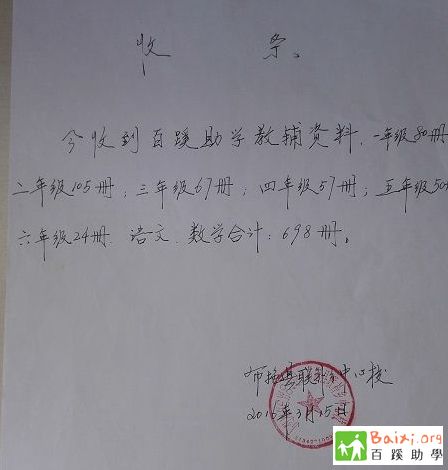 收 条。
今收到百蹊助学教辅资料.一年级80册
二年级105册;三年级67册;四年级57册;五年级50
六年级24册.语文.数学合计:698册。
布拖县联补 中心校
年3月15日
Baixi.org
百蹊助學